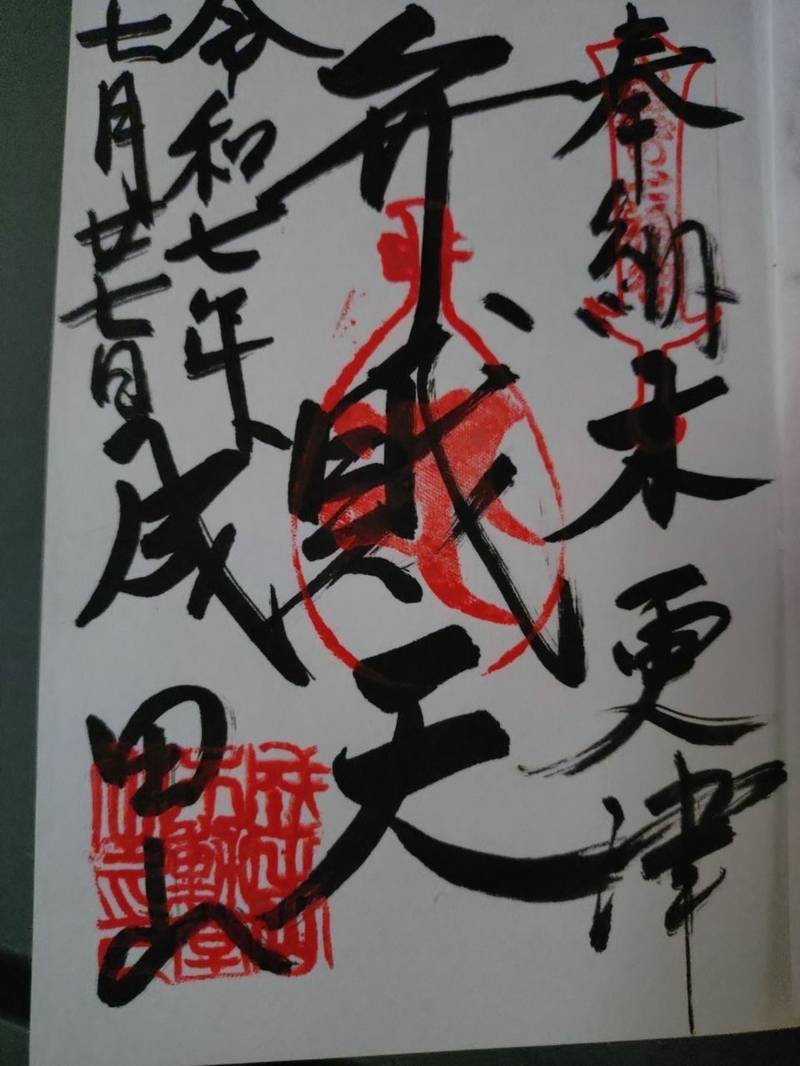 奉納 木更津
弁財天
令和七年
七月廿七日
成田山